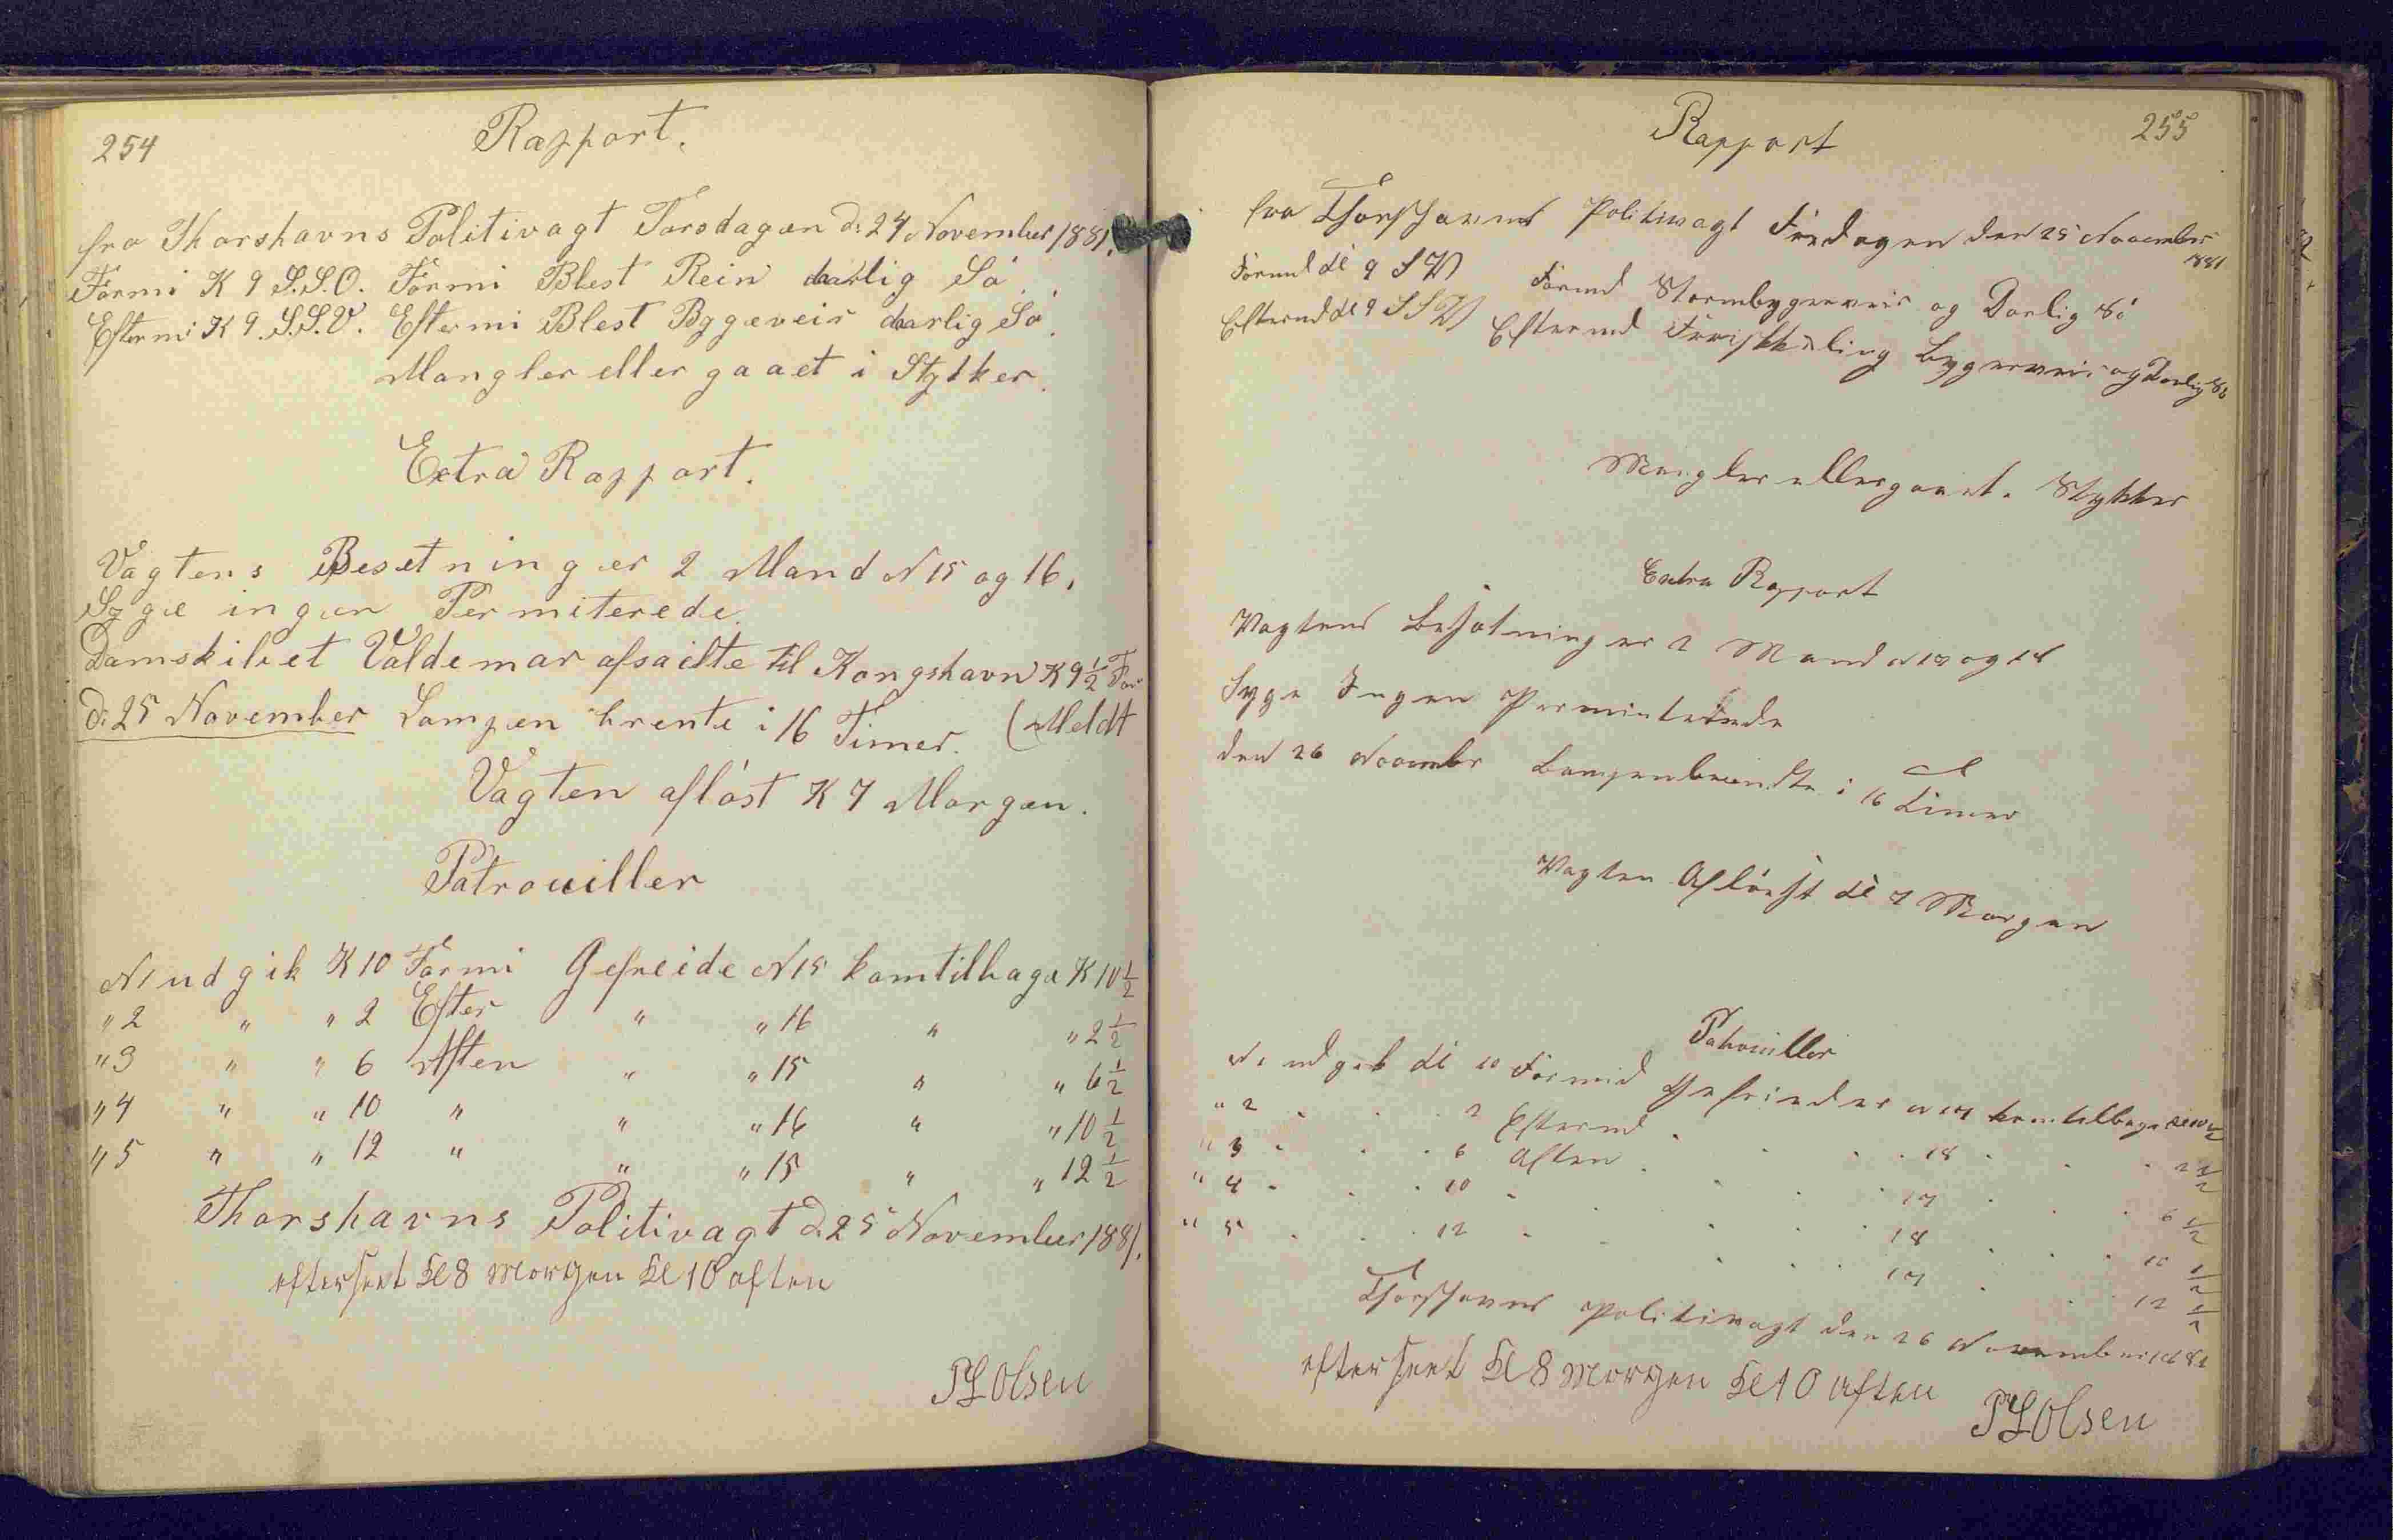 254
Rapport.
fra Thorshavns Politivagt Torsdagen D: 24 November 1881.
Formi K 9 S.S.O. Formi Blest Rein daarlig Sö.
Eftermi K 9. S.S.V. Eftermi Blest Byggeveir daarlig Sö.
Mangler eller gaaet i Stykker.
Extra Rapport.
Vagtens Besetning er 2 Mand N 15 og 16.
Syge ingen Permiterede.
Damskibet Valdemar afsailte til Kongshavn K 9 1/2 For
D: 25 November Lampen brente i 16 Timer. (Meldt
Vagten aflöst K 7 Morgen.
Patrouiller
N 1 udgik K 10 Formi Gefreide N 15 kom tilbage K 10 1/2
" 2 " " 2 Efter " " 16 " " 2 1/2
" 3 " " 6 Aften " " 15 " " 6 1/2
" 4 " " 10 " " " 16 " " 10 1/2
" 5 " " 12 " " " 15 " " 12 1/2
Thorshavns Politivagt D. 25 November 1881.
efterseet Kl 8 Morgen Kl 10 aften
PL Olsen
Rapport
255
fra Thorshavns Politivagt Fredagen den 25 November
1881
Formd Kl 9 SV Formd Stormbygeveir og Darlig Sö
Eftermd Kl 9 SSV Eftermd Friskkuling bygeveir og Darlig Sö
Mangler eller gaaet i Stykker
Extra Rapport
Vagtens Besätning er 2 Mand N 17 og 18
Syge Ingen Permiterede
den 26 November Lampen brendte i 16 Timer
Vagten Aflöest Kl 7 Morgen
Patrouiller
N 1 udgik Kl 10 Formid Gefrieder N 17 kom tilbage Kl 10 1/2
" 2 . . . 2 Eftermd . . . 18 . . . 2 1/2
" 3 . . . 6 Aften . . . 17 . . . 6 1/2
" 4 . . . 10 . . . . 18 . . . 10 1/2
" 5 . . . 12 . . . . 17 . . . 12 1/2
Thorshavns Politivagt den 26 November 1881
efterseet Kl 8 Morgen Kl 10 Aften
PL Olsen